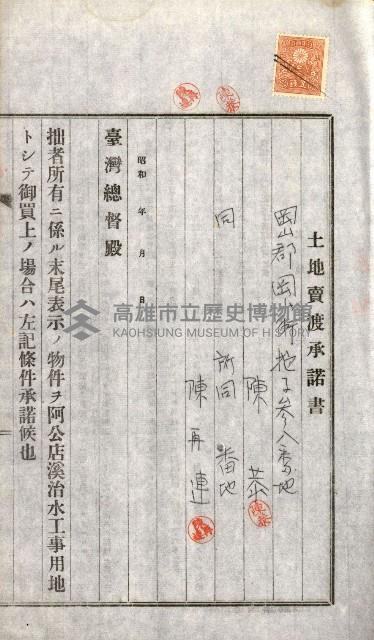 土地賣渡承諾書
岡山郡岡山街
番地
陳恭
同所同番地
陳再連
昭和 年 月 日
臺灣總督殿
拙者所有ニ係ル末尾表示ノ物件ヲ阿公店溪治水工事用地
トシテ御買上ノ場合ハ左記條件承諾候也
高雄市立歷史博物館
KAOHSIUNG MUSEUM OF HISTORY